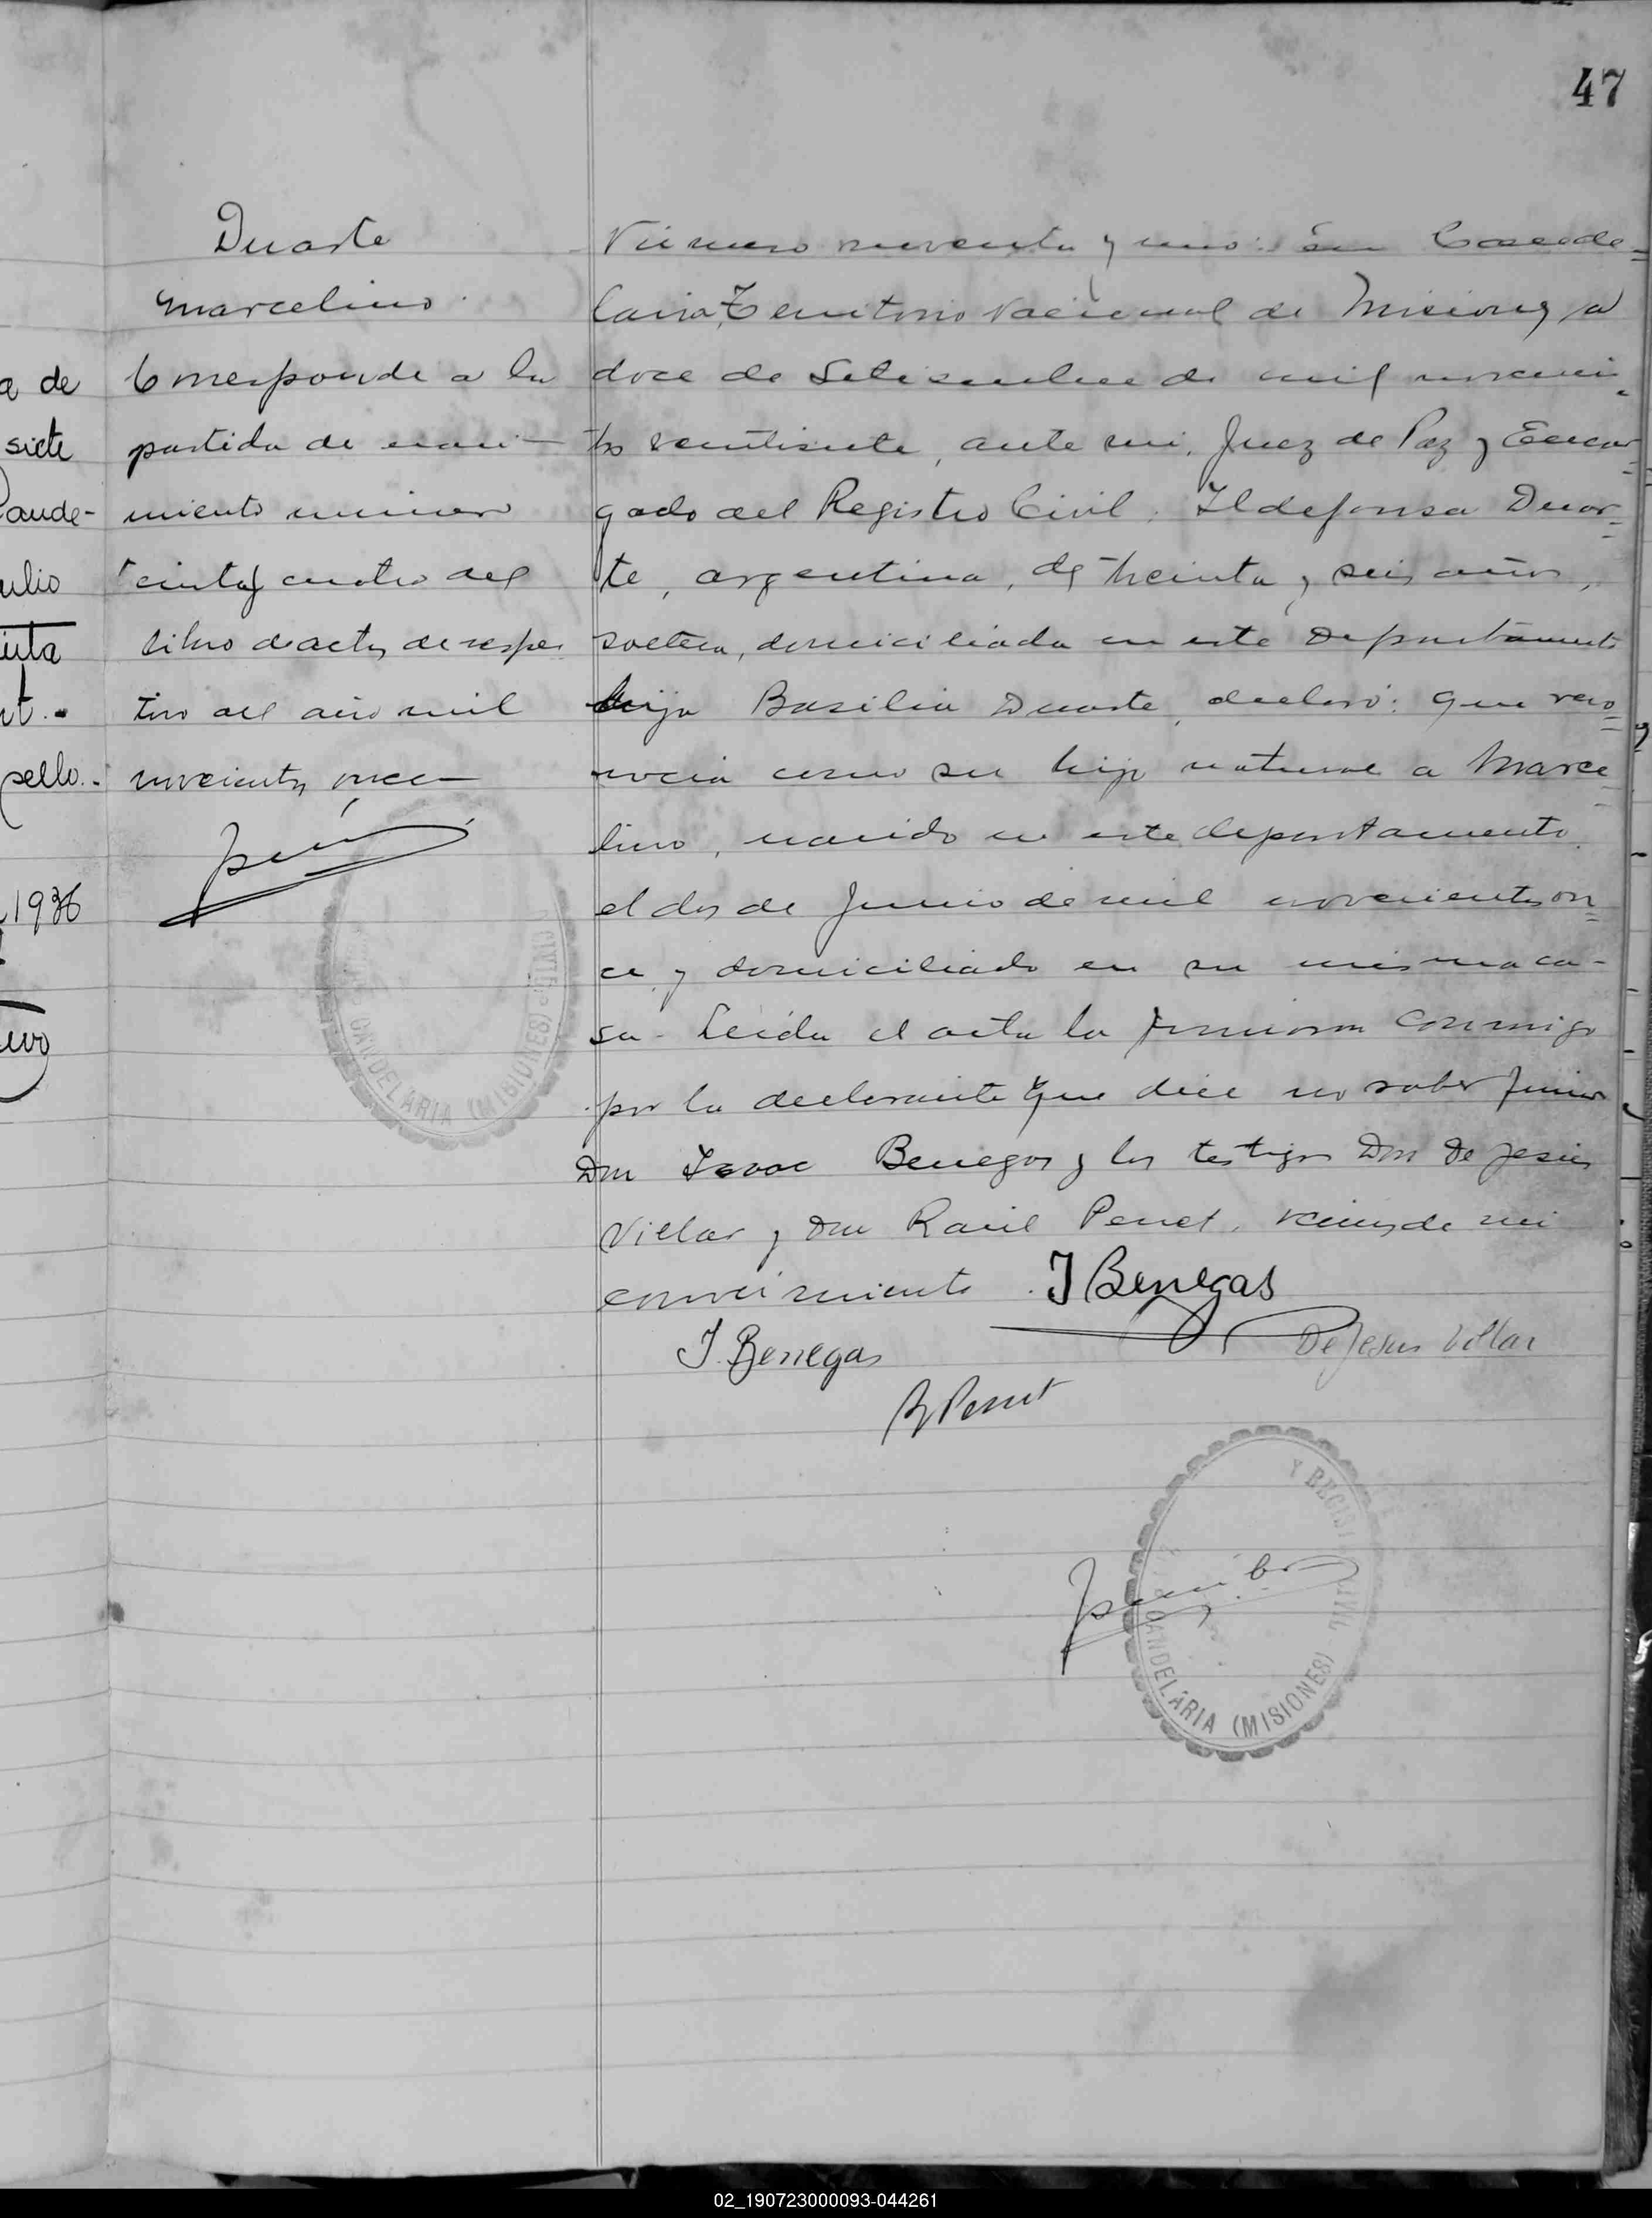 47
Duarte
Marcelino.
Corresponde a la
partida de naci-
miento número
cuatro del
libro de actas de respec
tivo del año mil
novecientos once
Número noventa y uno: En Cande=
laria, Territorio Nacional de Misiones, a
doce de Setiembre de mil novecien=
tos veintisiete, ante mi, Juez de Paz y Encar=
gado del Registro Civil, Ildefonsa Duar=
te, argentina, de treinta y seis años,
soltera, domiciliada en este Departamento
hija Basilia Duarte, declaró: Que reco=
nocia como su hijo natural a Marce=
lino, nacido en este departamento
el dos de Junio de mil novecientos on=
ce, y domiciliado en su misma ca-
sa- Leida el acta la firmaron conmigo
por la declarante que dice no saber firmar
Don Isaac Benegas y los testigos Don De Jesús
Villar y Don Raúl Perret, vecinos de mi
conocimiento. I Benegas
I. Benegas
De Jesus Villar
R Perret
CANDELARIA (MISIONES)
Y REGIST CIVIL
CANDELARIA (MISIONES)
a de
siete
ande-
ulio
sello.-
1936
02_190723000093-044261